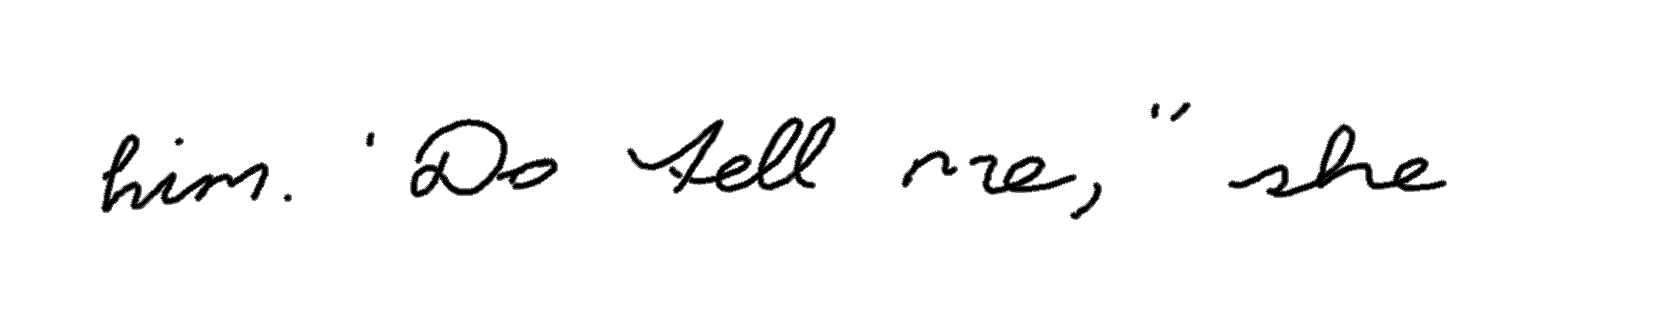 him. 'Do tell me," she